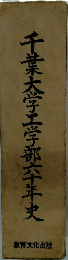 千葉大学工学部六十年史
教育文化出版